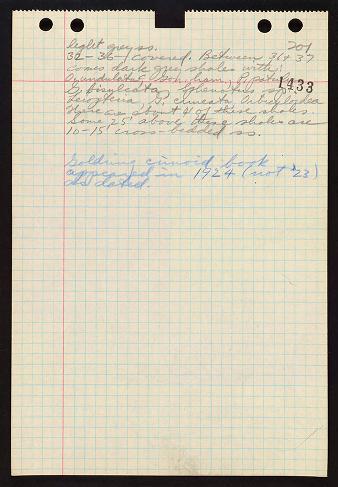 light grey ss. 201
32-36-covered. Between 36 + 37
comes dark grey shales with
O. undulata, Gon. ham, P. patul
G. bisulcata, Sphenotus sp. 1433
Leiopteria, P. cuneata Orbiculoidea
There are about 4 of these shales.
Some 25' above these shales are
10-15' cross-bedded ss.
Goldring crinoid book
appeared in 1924 (not '23)
as dated.